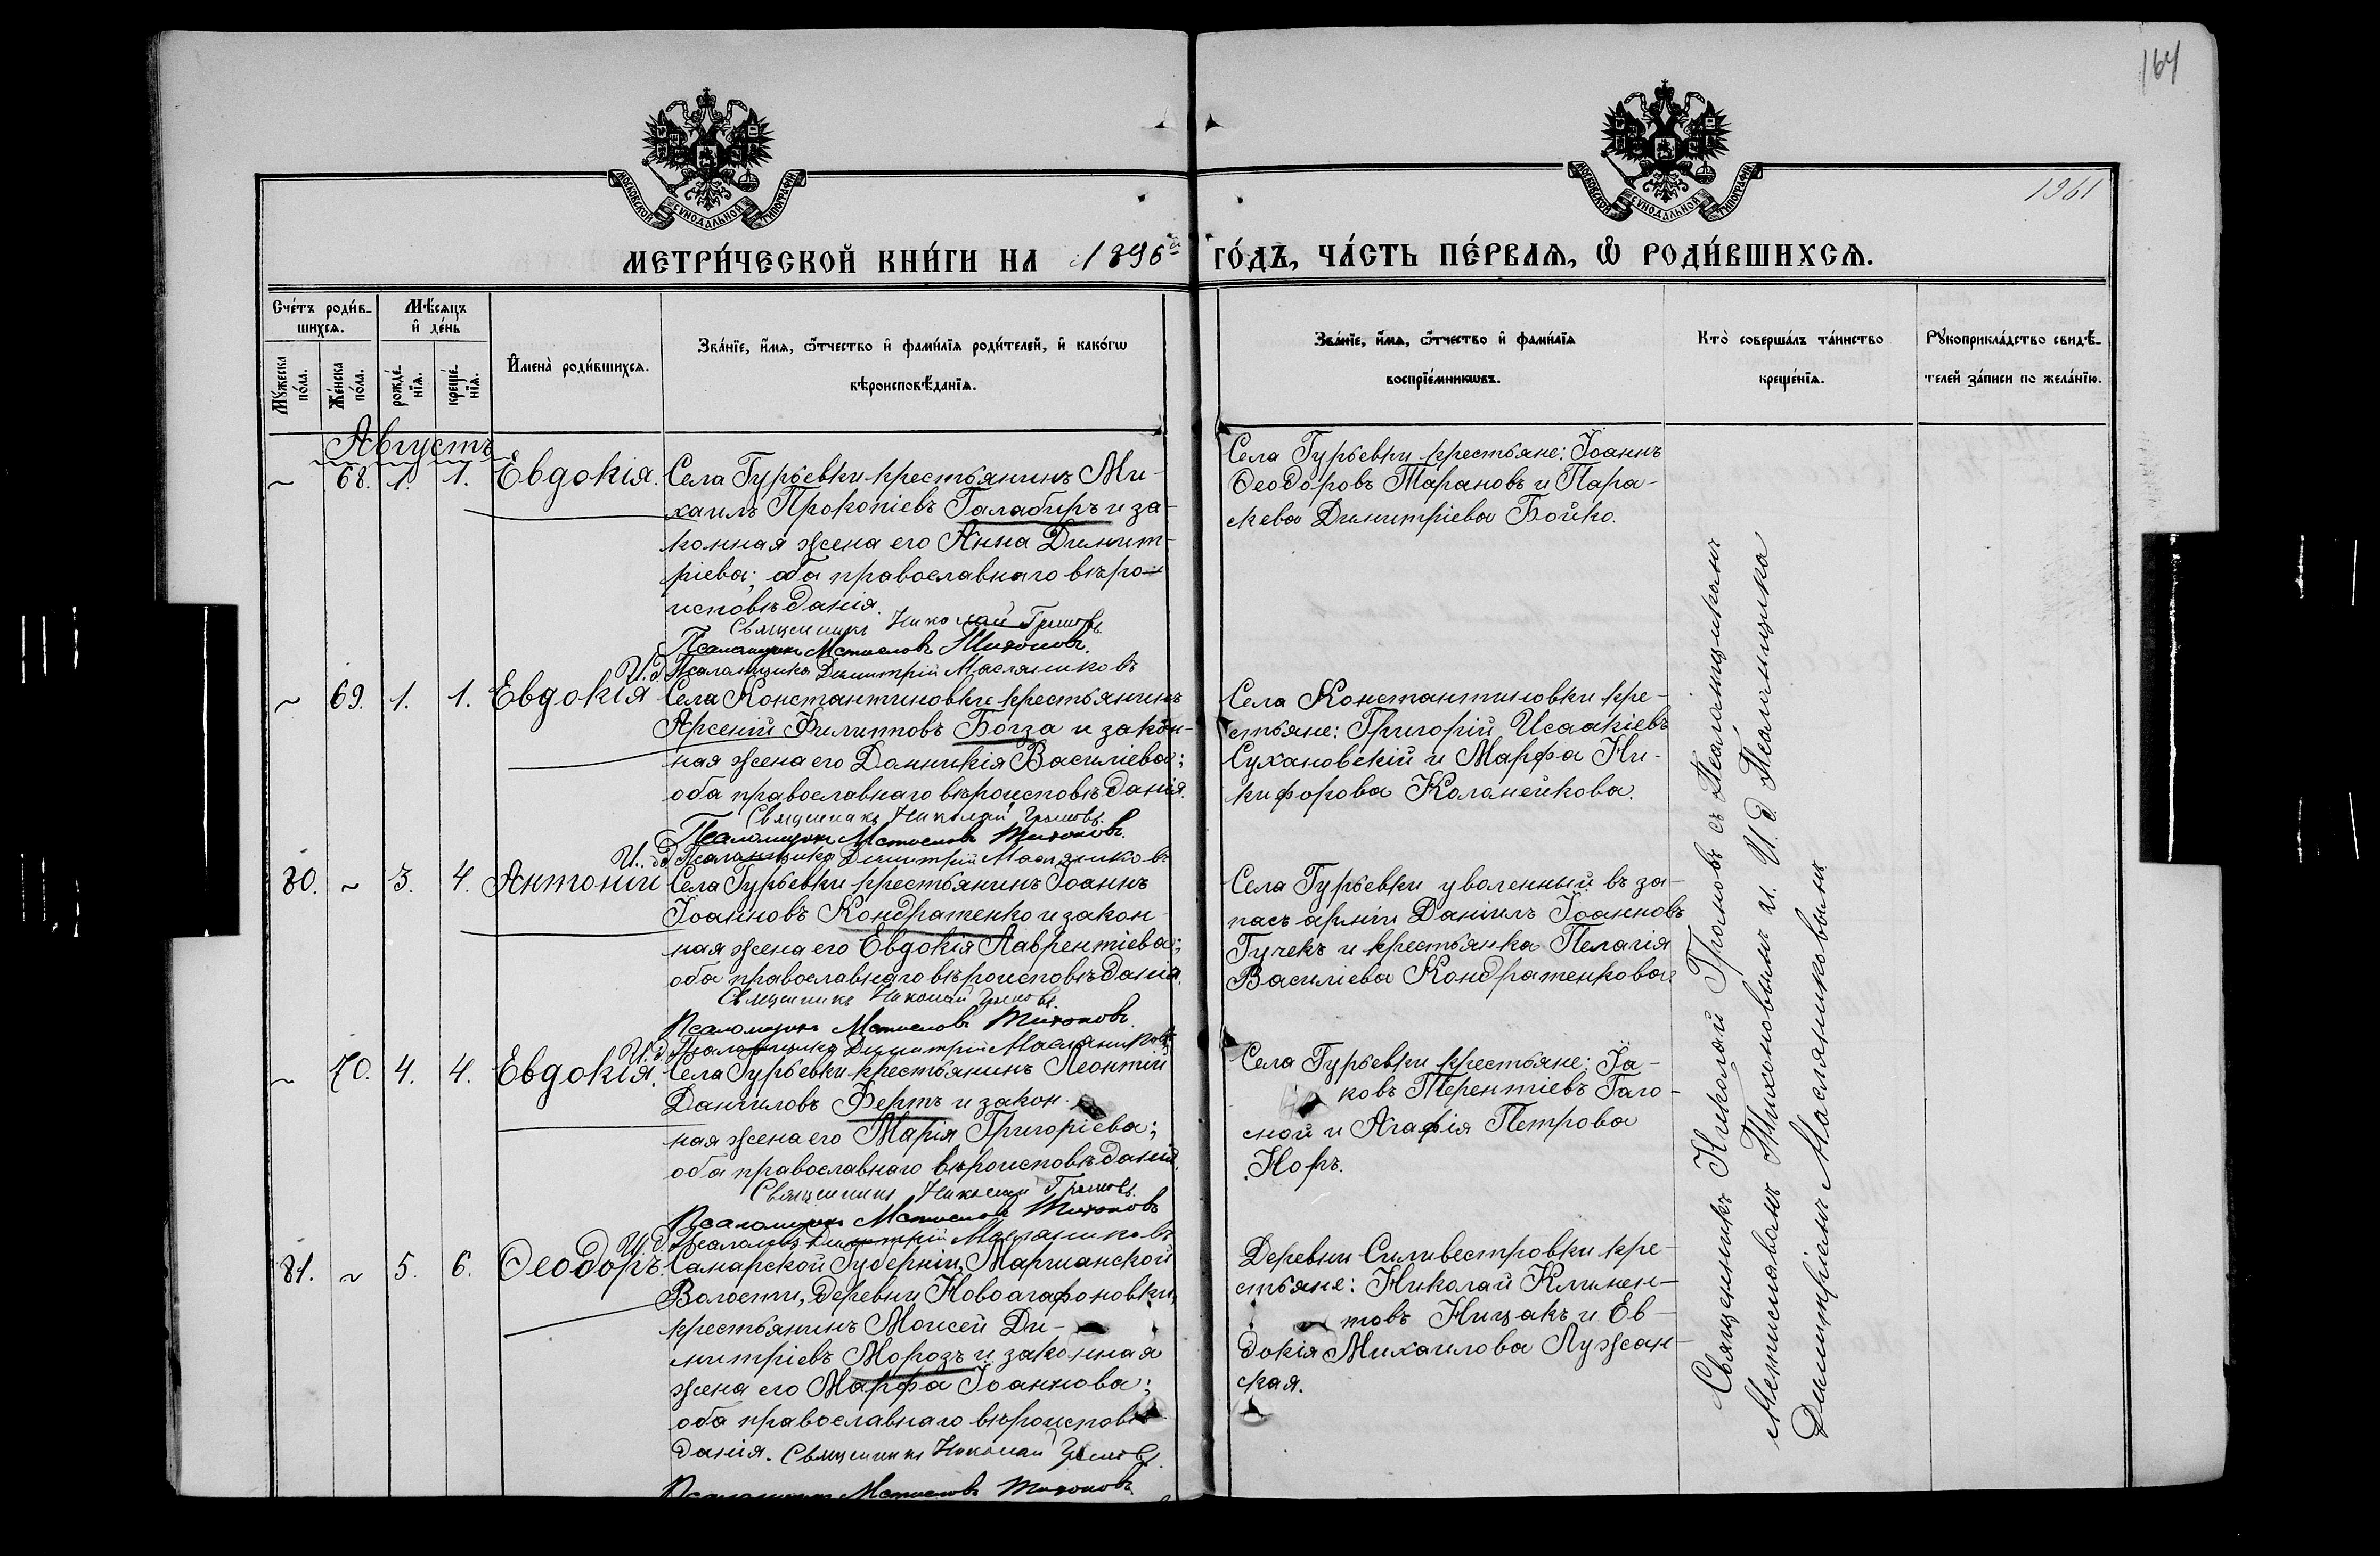 164
1961
МОСКОВСКОЙ СѴНОДАЛЬНОЙ ТИПОГРАФІИ
МОСКОВСКОЙ СѴНОДАЛЬНОЙ ТИПОГРАФІИ
МЕТРИ́ЧЕСКОЙ КНИ́ГИ НА 1896й ГО́ДЪ, ЧА́СТЬ ПЕ́РВАЯ, Ѡ РОДИ́ВШИХСЯ.
Сче́тъ роди́в-
шихся.
Мѣ́сяцъ
и де́нь
Мꙋ́жеска
по́ла.
Же́нска
по́ла.
рожде́-
нїя.
креще́-
нїя.
Имена̀ роди́вшихся.
Зва́нїе, и́мя, ѻ҆́тчество и фами́лїя роди́телей, и како́гѡ
вѣроисповѣ́данїя.
Зва́нїе, и́мя, ѻ҆́тчество и фами́лїя
воспрїе́мникѡвъ.
Кто̀ соверша́лъ та́инство
креще́нїя.
Рꙋкоприкла́дство свидѣ́-
телей за́писи по жела́нїю.
Августъ
~ 68. 1. 1. Евдокія. Села Гурьевки крестьянинъ Ми-
хаилъ Прокопіевъ Галабиръ и за-
конная жена его Анна Димит-
ріева; оба православнаго вѣро-
исповѣданія.
Священникъ Николай Громовъ.
Псаломщикъ Мстиславъ Тихоновъ.
И. д. Псаломщика Димитрій Масляниковъ
Села Гурьевки крестьяне: Іоаннъ
Ѳеодоровъ Тарановъ и Пара-
скева Димитріева Бойко.
~ 69. 1. 1. Евдокія Села Константиновки крестьянинъ
Арсеній Филипповъ Богза и закон-
ная жена его Домникія Василіева;
оба православнаго вѣроисповѣданія.
Священникъ Николай Громовъ.
Псаломщикъ Мстиславъ Тихоновъ.
И. д. Псаломщика Димитрій Масляниковъ
Села Константиновки кре-
стьяне: Григорій Исаакіевъ
Сухановскій и Марфа Ни-
кифорова Коланейкова.
80. ~ 3. 4. Антоній Села Гурьевки крестьянинъ Іоаннъ
Іоанновъ Кондратенко и закон-
ная жена его Евдокія Лаврентіева;
оба православнаго вѣроисповѣданія.
Священникъ Николай Громовъ.
Псаломщикъ Мстиславъ Тихоновъ.
И. д. Псаломщика Димитрій Масляниковъ
Села Гурьевки уволенный въ за-
пасъ арміи Даніилъ Іоанновъ
Гучекъ и крестьянка Пелагія
Василіева Кондратенкова.
~ 70. 4. 4. Евдокія. Села Гурьевки крестьянинъ Леонтій
Даніиловъ Фертъ и закон-
ная жена его Марія Григоріева;
оба православнаго вѣроисповѣданія.
Священникъ Николай Громовъ.
Псаломщикъ Мстиславъ Тихоновъ
И. д. Псаломщ. Димитрій Масляниковъ
Села Гурьевки крестьяне: Іа-
ковъ Терентіевъ Гаго-
сной и Агафія Петрова
Норъ.
81. ~ 5. 6. Ѳеодоръ. Самарской Губерніи, Марианской
Волости, деревни Новоагафоновки,
крестьянинъ Моисей Ди-
митріевъ Морозъ и законная
жена его Марфа Іоаннова;
оба православнаго вѣроисповѣ-
данія. Священникъ Николай Громовъ.
Псаломщикъ Мстиславъ Тихоновъ
Деревни Силивестровки кре-
стьяне: Николай Климен-
товъ Ницакъ и Ев-
докія Михаилова Лужан-
ская.
Священникъ Николай Громовъ съ Псаломщикомъ
Мстиславомъ Тихоновымъ и И. д. Псаломщика
Димитріемъ Масляниковымъ